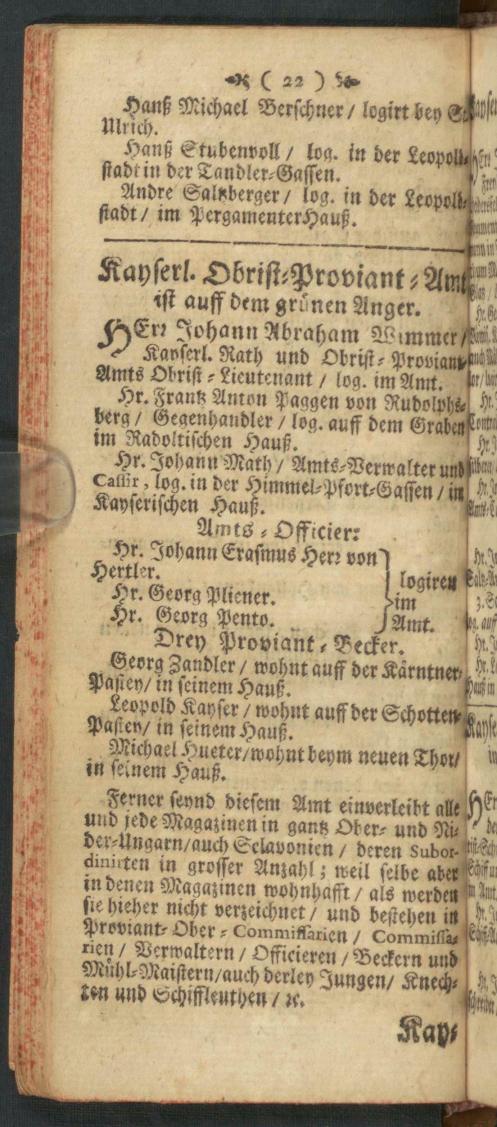 ( 22 )
Hanß Michael Berschner / logirt bey St.
Ulrich.
Hanß Stubenvoll / log. in der Leopold-
stadt in der Tandler-Gassen.
Andre Saltzberger / log. in der Leopold-
stadt / im Pergamenter Hauß.
Kayserl. Obrist-Proviant-Amt
ist auff dem grünen Anger.
HErr Johann Abraham Wimmer /
Kayserl. Rath und Obrist-Proviant-
Amts Obrist-Lieutenant / log. im Amt.
Hr. Frantz Anton Paggen von Rudolphs-
berg / Gegenhandler / log. auff dem Graben
im Radoltischen Hauß.
Hr. Johann Math / Amts-Verwalter und
Cassir, log. in der Himmel-Pfort-Gassen / im
Kayserischen Hauß.
Amts-Officier:
Hr. Johann Erasmus Herr von
Hertler.
Hr. Georg Pliener.
Hr. Georg Pento.
logiren
im
Amt.
Drey Proviant-Becker.
Georg Zandler / wohnt auff der Kärntner-
Pastey / in seinem Hauß.
Leopold Kayser / wohnt auff der Schotten-
Pastey / in seinem Hauß.
Michael Hueter / wohnt beym neuen Thor /
in seinem Hauß.
Ferner seynd diesem Amt einverleibt alle
und jede Magazinen in gantz Ober- und Ni-
der-Ungarn / auch Sclavonien / deren Subor-
dinirten in grosser Anzahl; weil selbe aber
in denen Magazinen wohnhafft / als werden
sie hieher nicht verzeichnet / und bestehen in
Proviant-Ober-Commissarien / Commissa-
rien / Verwaltern / Officieren / Beckern und
Mühl-Maistern / auch derley Jungen / Knech-
ten und Schiffleuthen / ꝛc.
Kay-